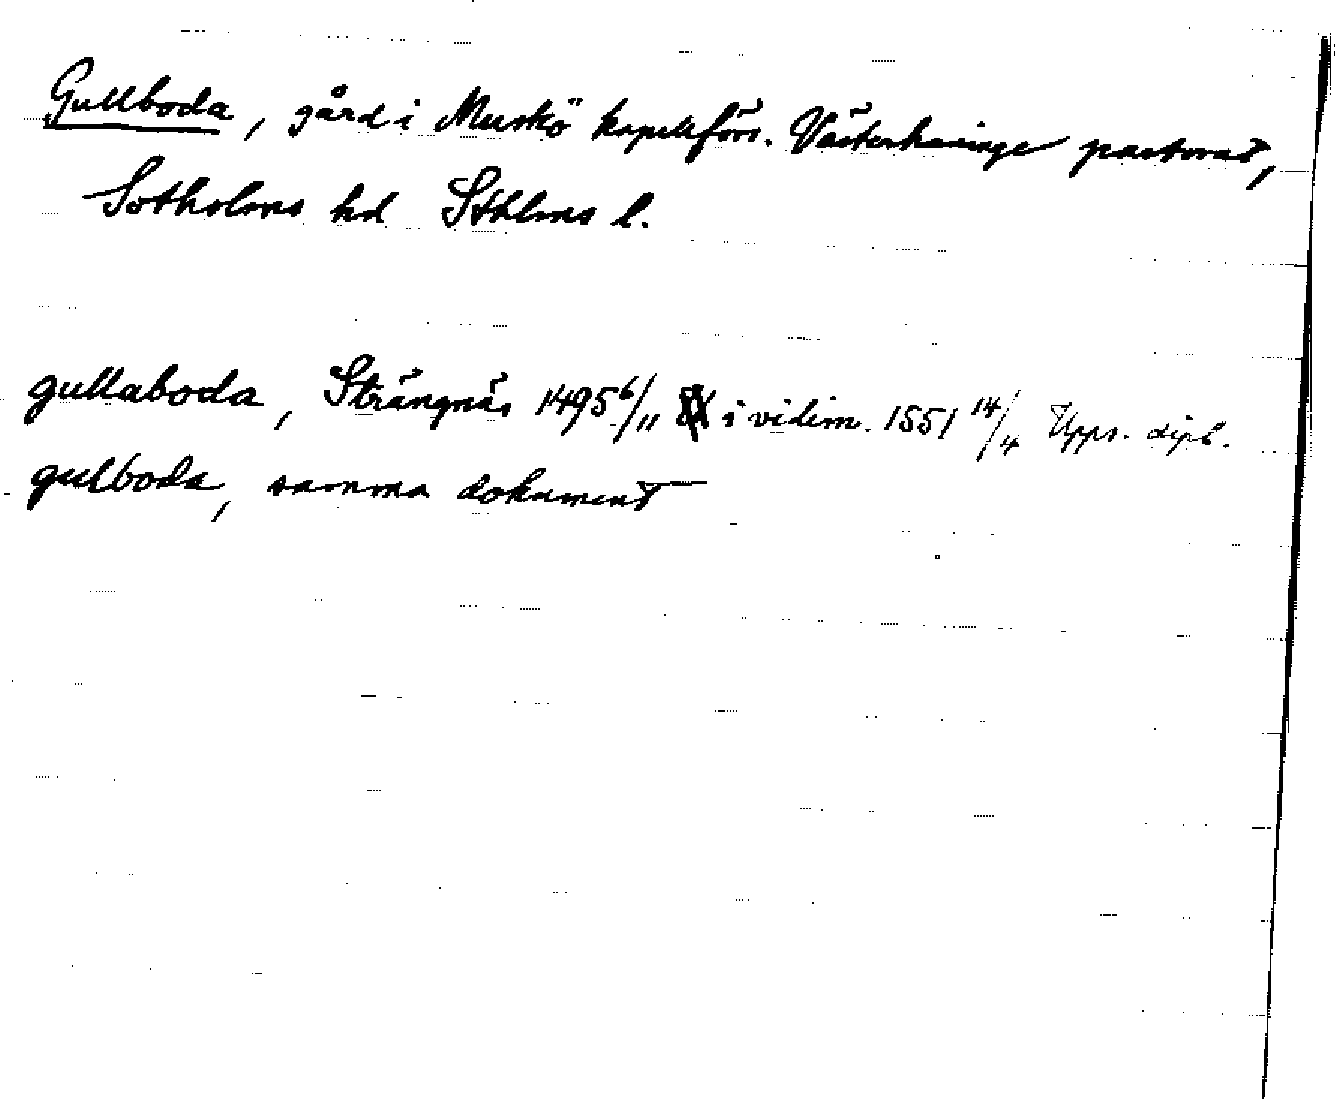 Gullboda, gård i Muskö kapellförs. Västerhaninge pastorat,
Sotholms hd Sthlms l.
gullaboda, Strängnäs 1495 6/11 i vidim. 1551 14/4 Upps. dipl.
gulboda, samma dokument